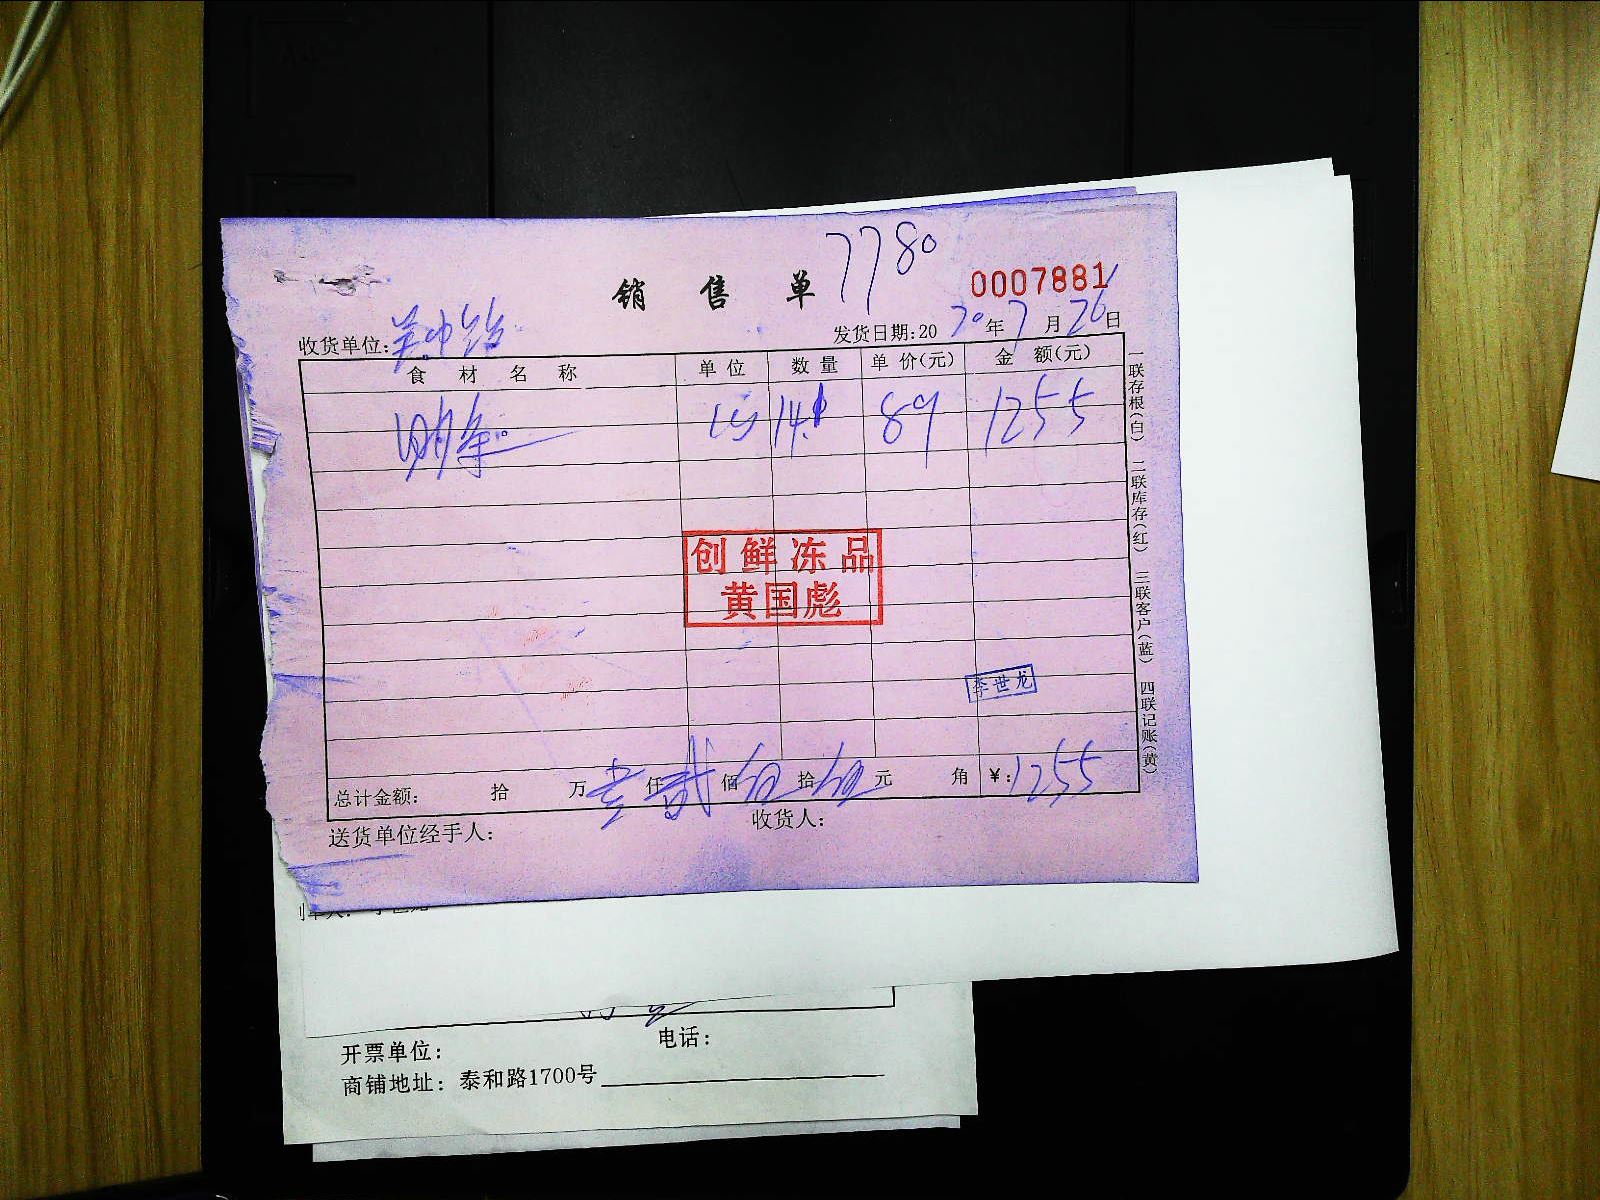 7780
销售单
0007881
收货单位:
发货日期:2020年7月26日
食材名称 单位 数量 单价(元) 金额(元)
14.1 89 1255
创鲜冻品
黄国彪
李世龙
总计金额: 拾 万 壹 仟 贰 佰 伍 拾 伍 元 角 ¥:1255
送货单位经手人: 收货人:
一联存根(白) 二联库存(红) 三联客户(蓝) 四联记账(黄)
开票单位: 电话:
商铺地址: 泰和路1700号